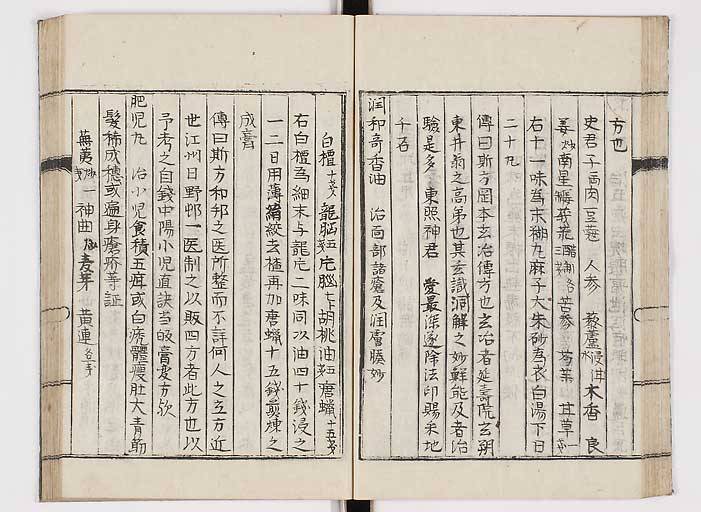 方也
史君子 肉豆蔻 人参 藜蘆 木香 良
姜 南星 苦参 甘草
右十一味為末糊丸麻子大朱砂為衣白湯下日
二十九
傳曰斯方岡本玄治傳方也玄治者延壽院玄朔
東井翁之高弟也其玄識洞解之妙鮮能及者治
驗是多 東照神君 愛最深遂除法印賜采地
千石
潤和奇香油 治面部諸瘡及潤膚腠妙
白檀 龍脳 片脳 胡桃油 唐蝋
右白檀為細末与龍片二味同以油四十錢浸之
一二日用薄絹絞去楂再加唐蝋十五錢煎煉之
成膏
傳曰斯方和邦之医所整而不詳何人之立方近
世江州日野邨一医制之以販四方者此方也以
予考之自錢中陽小児直訣当
肥児丸 治小児食積五疳或白禿體瘦肚大青筋
髮稀成穗或遍身瘡疥等証
蕪荑 神曲 麦芽 黄連